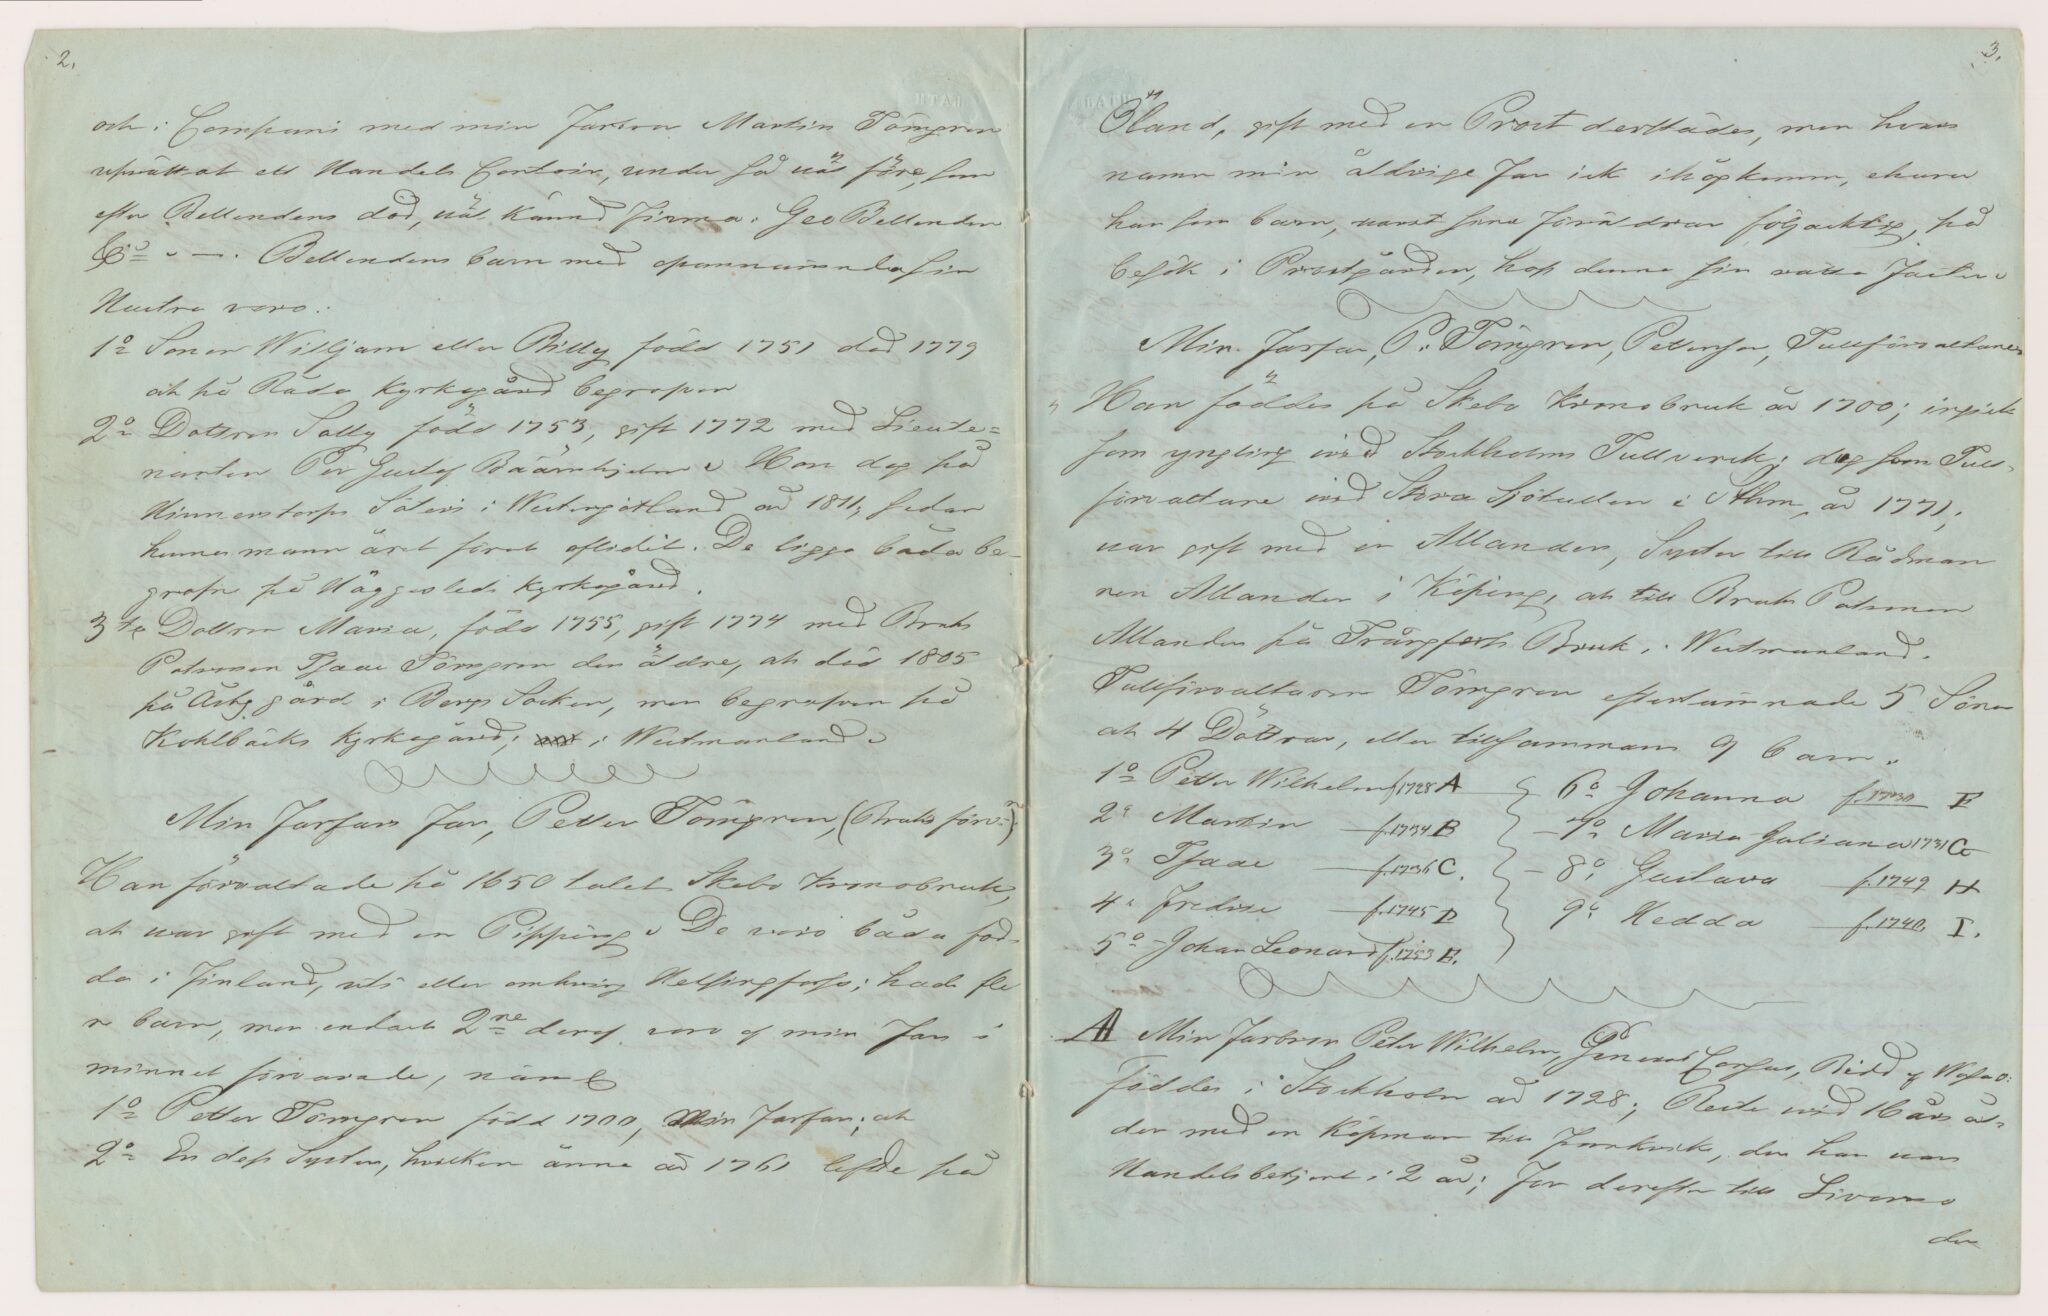 2.
och i Compani med min Farbror Martin Törngren
uprättat ett Handels Contoir, under så väl före, som
efter Bellendens död, väl känd Firma: Geo Bellenden
& Co. Bellendens barn med ofvannämnda sin
Hustru voro:
1o Sonen Willjam eller Billy född 1751 död 1779
och på Råda Kyrkogård begrafven
2o Dottren Sally född 1753, gift 1772 med Lieute=
nanten Per Gustaf Bäärnhjelm. Hon dog på
Himmerstorps Säteri i Westergötland år 1811, sedan
hennes mann året förut aflidit. De ligga båda be-
grafne på Häggesleds Kyrkogård.
3o Dottren Maria, född 1755, gift 1774 med Bruks
Patronen Isaac Törngren den äldre, och död 1805
på Åsby gård i Bergs Socken, men begrafven på
Kohlbäcks Kyrkogård; i Westmanland.
Min Farfars Far, Petter Törngren, (Bruks förv:)
Han förvaltade på 1650 talet Skebo Kronobruk,
och var gift med en Pipping. De voro båda föd-
da i Finland, uti eller omkring Helsingfors; hade fle
ra barn, men endast 2ne deraf voro af min Far i
minnet förvarade, näml
1o Petter Törngren född 1700, Min Farfar; och
2o En dess Syster, hvilken ännu år 1761 lefde på
3.
Öland, gift med en Prost derstädes, men hvars
namn min åldrige Far ick ihågkomm, ehuru
han som barn, varit sina föräldrar följacktig, på
besök i Prostgården, hos denna sin rätta Faster.
Min Farfar, P. Törngren, Petterson, Tullförvaltaren
Han föddes på Skebo Kronobruk år 1700; ingick
som yngling vid Stockholms Tullverk; dog som Tull-
förvaltare vid Stora Sjötullen i Sthm, år 1771;
var gift med en Allander, Syster till Rådman
nen Allander i Köping, och till Bruks Patronen
Allander på Trångfors Bruk, i Westmanland.
Tullförvaltaren Törngren efterlämnade 5 Söner
och 4 Döttrar, eller tillsammans 9 barn.
1o Petter Wilhelm f 1728 A 6o Johanna f. 1730 F
2o Martin f. 1734 B 7o Maria Juliana 1731 G
3o Isaac f. 1736 C. 8o Gustava f. 1749 H
4o Fredric f. 1745 D 9o Hedda f. 1740, I.
5o Johan Leonard f. 1753 E.
A Min Farbror Peter Wilhelm, General Consul, Ridd af Wasa O:
Föddes i Stockholm år 1728; Reste vid 16 års ål-
der med en Köpman till Frankrik, der han var
Handelsbetjent i 2 år; For derefter till Livorno
der